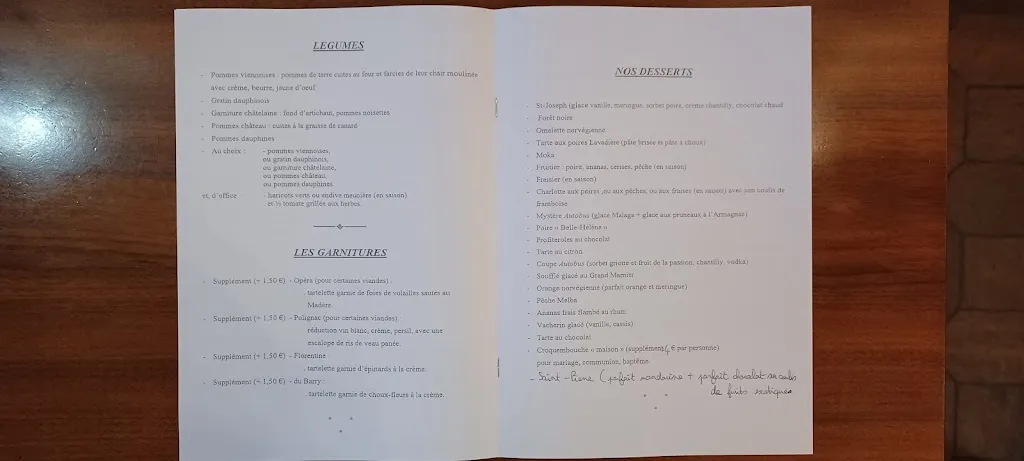 LEGUMES
- Pommes viennoises : pommes de terre cuites au four et farcies de leur chair moulinée
avec crème, beurre, jaune d'oeuf
- Gratin dauphinois
- Garniture châtelaine : fond d'artichaut, pommes noisettes
- Pommes château : cuites à la graisse de canard
- Pommes dauphines
- Au choix : - pommes viennoises,
ou gratin dauphinois,
ou garniture châtelaine,
ou pommes château,
ou pommes dauphines
et, d'office - haricots verts ou endive meunière (en saison)
et ½ tomate grillée aux herbes.
LES GARNITURES
- Supplément (+ 1,50 €) - Opéra (pour certaines viandes) :
. tartelette garnie de foies de volailles sautés au
Madère.
- Supplément (+ 1,50 €) - Polignac (pour certaines viandes).
réduction vin blanc, crème, persil, avec une
escalope de ris de veau panée.
- Supplément (+ 1,50 €) - Florentine :
. tartelette garnie d'épinards à la crème.
- Supplément (+ 1,50 €) - du Barry :
. tartelette garnie de choux-fleurs à la crème.
NOS DESSERTS
- St-Joseph (glace vanille, meringue, sorbet poire, crème chantilly, chocolat chaud
- Forêt noire
- Omelette norvégienne
- Tarte aux poires Lavadière (pâte brisée et pâte à choux)
- Moka
- Fruitier : poire, ananas, cerises, pêche (en saison)
- Fraisier (en saison)
- Charlotte aux poires ,ou aux pêches, ou aux fraises (en saison) avec son coulis de
framboise
- Mystère Autobus (glace Malaga + glace aux pruneaux à l'Armagnac)
- Poire « Belle-Hélène »
- Profiteroles au chocolat
- Tarte au citron
- Coupe Autobus (sorbet griotte et fruit de la passion, chantilly, vodka)
- Soufflé glacé au Grand Marnier
- Orange norvégienne (parfait orange et meringue)
- Pêche Melba
- Ananas frais flambé au rhum
- Vacherin glacé (vanille, cassis)
- Tarte au chocolat
- Croquembouche « maison » (supplément € par personne)
pour mariage, communion, baptême.
- Saint-Pierre (parfait mandarine + parfait chocolat au coulis
de fruits exotiques